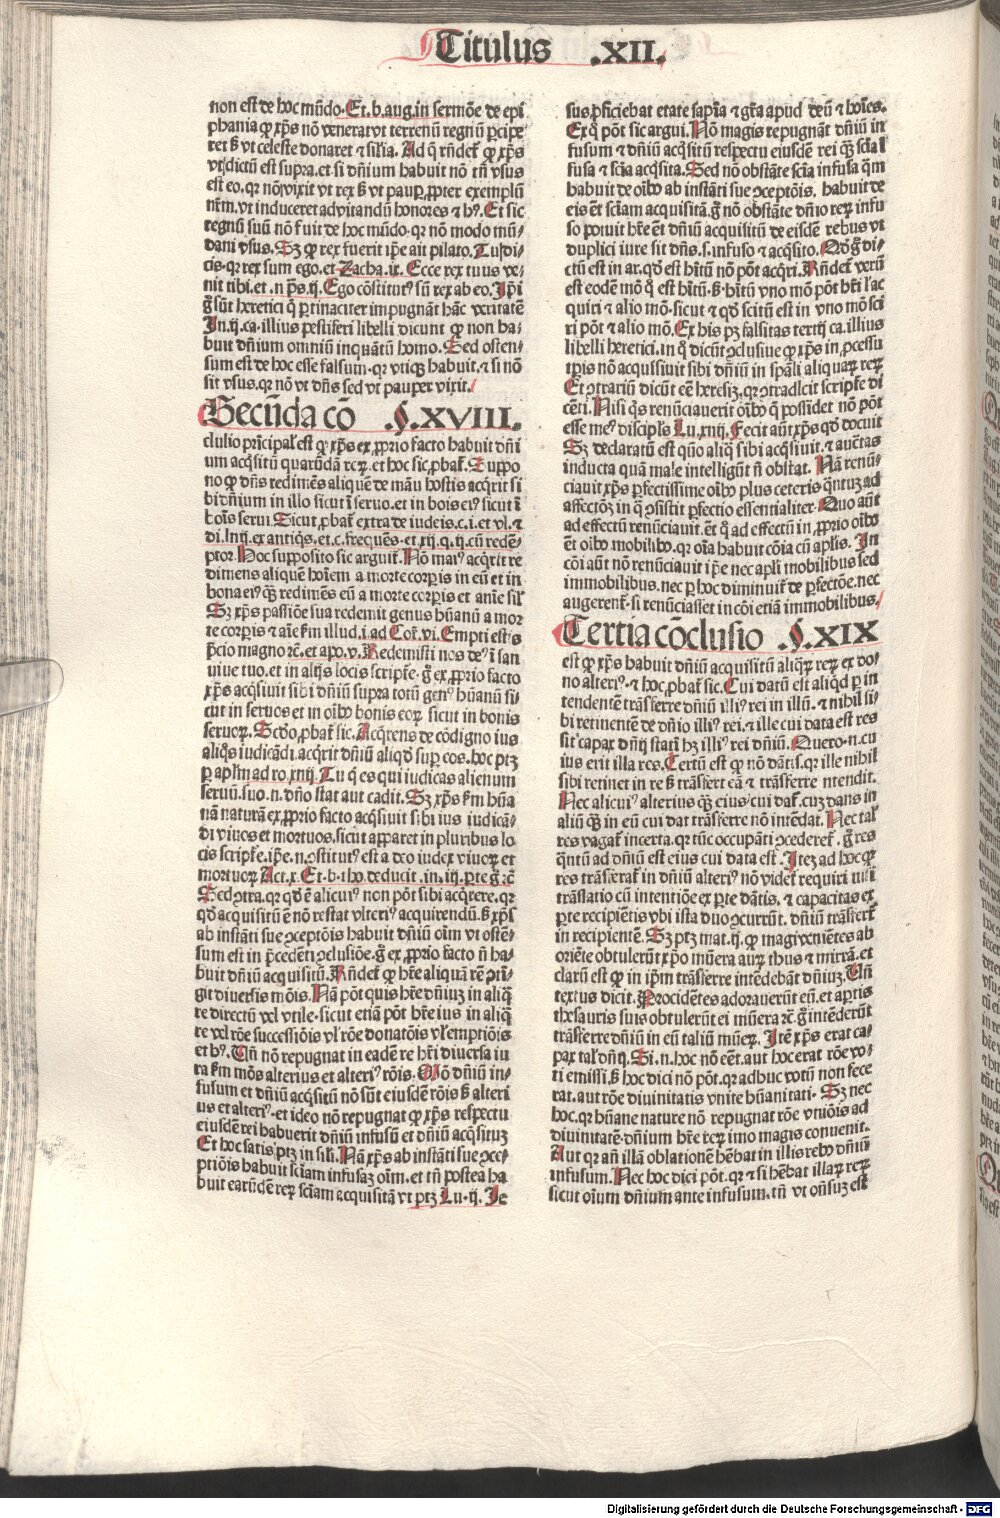 Titulus .XII.
non est de hoc mūdo. Et .b. aug. in sermōe de epi
phania ꝙ xp̄s nō venerat vt terrenū regnū ꝑcipe
ret sꝫ vt celeste donaret ⁊ sil'ia. Ad q̄ rn̄det̄ ꝙ xp̄s
vt dictū est supra. et si dn̄ium habuit nō tn̄ vsus
est eo. qꝛ nō vixit vt rex sꝫ vt pauꝑ. ꝓpter exemplū
nr̄m. vt induceret ad vitandū honores ⁊ hꝰ. Et sic
regnū suū nō fuit de hoc mūdo. qꝛ nō modo mū⸗
dani vsus. Sꝫ ꝙ rex fuerit ip̄e ait pilato. Tu di⸗
cis. qꝛ rex sum ego. et Zacha .ix. Ecce rex tuus ve⸗
nit tibi. et .n p̄s. ij. Ego cōstitutꝰ sū rex ab eo. Ip̄i
g̊ sūt heretici q̄ pertinaciter impugnāt hāc veritatē
In .ij. ca. illius pestiferi libelli dicunt ꝙ non ha⸗
buit dn̄ium omniū inquātū homo. Sed osten⸗
sum est de hoc esse falsum. qꝛ vtiqꝫ habuit. ⁊ si nō
sit vsus. qꝛ nō vt dn̄s sed vt pauper vixit.
Secūda cō .§.XVIII.
clusio prīcipal' est ꝙ xp̄s ex ꝓprio facto habuit dn̄i
um acq̄sitū quarūdā reꝝ. et hoc sic ꝓbat̄. Suppo
no ꝙ dn̄s redimēs aliquē de māu hostis acq̄rit si
bi dn̄ium in illo sicut ī seruo. et in bois eiꝰ sicut ī
boīs serui. Sicut ꝓbat̄ extra de iudeis .c. i. et vl. ⁊
di. lnij. ex antiq̄s. et .c. frequēs. et .xij. q. ij. cū redē⸗
ptor. Hoc supposito sic arguit̄. Nō maiꝰ acq̄rit re
dimens aliquē hoīem a morte corꝑis in eū et in
bona eiꝰ qꝫ redimēs eū a morte corꝑis et anīe sil'
Sꝫ xp̄s passiōe sua redemit genus hūanū a mor
te corꝑis ⁊ aīe ẜm illud .i. ad Cor̄. vi. Empti estis
p̄cio magno ⁊c̄. et apo. v. Redemisti nos deꝰ ī san
uine tuo. et in alijs locis script̄e. g̊ ex ꝓprio facto
xp̄s acq̄siuit sibi dn̄iū supra totū genꝰ hūanū si⸗
cut in seruos et in oībꝰ bonis eoꝝ sicut in bonis
seruoꝝ. Scd̄o ꝓbat̄ sic. Acq̄rens de cōdigno ius
aliq̄s iudicādi. acq̄rit dn̄iū aliqd̄ suꝑ eos. hoc ptꝫ
ꝑ aplm̄ ad ro. xnij. Tu q̄ es qui iudicas alienum
seruū. suo .n. dn̄o stat aut cadit. Sꝫ xp̄s ẜm hūa
nā naturā ex ꝓprio facto acq̄siuit sibi ius iudicā⸗
di viuos et mortuos. sicut apparet in pluribus lo
cis script̄e. ip̄e .n. ꝯstitutꝰ est a deo iudex viuoꝝ et
mortuoꝝ Act. x. Et .b. tho. deducit .in. iij. ꝑte g̊ ⁊c̄
Sed ꝯtra. qꝛ qd̄ ē alicuiꝰ non pōt sibi acq̄rere. qꝛ
qd̄ acquisitū ē nō restat vlteriꝰ acquirendū. sꝫ xp̄s
ab instāti sue ꝯceptōis habuit dn̄iū oīm vt ostē⸗
sum est in p̄cedēti ꝯclusiōe. g̊ ex ꝓprio facto n̄ ha⸗
buit dn̄iū acquisitū. Rn̄det̄ ꝙ hr̄e aliquā rē ꝯtī⸗
git diuersis mōis. Nā pōt quis hr̄e dn̄iuꝫ in aliq̄
re directū vel vtile. sicut etiā pōt hr̄e ius in aliq̄
re vel rōe successiōis vl' rōe donatōis vl' emptiōis
et hꝰ. Tn̄ nō repugnat in eadē re hr̄i diuersa iu
ra ẜm mōs alterius et alteriꝰ rōis. Mō dn̄iū in⸗
fusum et dn̄iū acq̄sitū nō sūt eiusdē rōis sꝫ alteri
us et alteriꝰ. et ideo nō repugnat ꝙ xp̄s respectu
eiusdē rei habuerit dn̄iū infusū et dn̄iū acq̄situꝫ
Et hoc satis ptꝫ in sil'i. Nā xp̄s ab instāti sue ꝯce⸗
ptiōis habuit sciam̄ infusaꝫ oīm. et tn̄ postea ha
buit earūdē reꝝ sciam̄ acquisitā vt ptꝫ Lu. ij. Je
sus ꝓficiebat etate sap̄ia ⁊ gr̄a apud deū ⁊ hoīes.
Ex q̄ pōt sic argui. Nō magis repugnāt dn̄iū in
fusum ⁊ dn̄iū acq̄sitū respectu eiusdē rei qꝫ sciā ī
fusa ⁊ sciā acq̄sita. Sed nō obstāte sciā infusa q̄m
habuit de oībꝰ ab instāti sue ꝯceptōis. habuit de
eis ēt sciam̄ acquisitā. g̊ nō obstāte dn̄io reꝝ infu
so potuit hr̄e ēt dn̄iū acquisitū de eisdē rebus vt
duplici iure sit dn̄s .s. infuso ⁊ acq̄sito. Qd̄ g̊ di⸗
ctū est in ar. qd̄ est hītū nō pōt acq̄ri. Rn̄det̄ verū
est eodē mō q̊ est hītū. sꝫ hītū vno mō pōt bn̄ ī ac
quiri ⁊ alio mō. sicut ⁊ qd̄ scitū est in vno mō sci
ri pōt ⁊ alio mō. Ex his pꝫ falsitas tertij ca. illius
libelli heretici. in q̊ dicūt ꝯclusiue ꝙ xp̄s in ꝓcessu
tp̄is nō acquisiuit sibi dn̄iū in spāli aliquaꝝ reꝝ
Et ꝯtrariū dicūt eē heresiꝫ. qꝛ ꝯtradicit scripte di
cēti. Nisi q̄s renūciauerit oībꝰ q̄ possidet nō pōt
esse meꝰ discipl's Lu. xnij. Fecit aūt xp̄s qd̄ docuit
Sꝫ declaratū est quō aliq̄ sibi acq̄siuit. ⁊ auctas
inducta quā male intelligūt n̄ obstat. Nā renū⸗
ciauit xp̄s ꝑfectissime oībꝰ plus ceteris q̄ntuꝫ ad
affectōꝫ in q̊ ꝯsistit ꝑfectio essentialiter. Quo aūt
ad effectū renūciauit. ēt q̊ ad effectū in ꝓprio oībꝰ
ēt oībꝰ mobilibꝰ. qꝛ oīa habuit cōia cū aplīs. In
cōi aūt nō renūciauit ip̄e nec apl'i mobilibus sed
immobilibus. nec ꝑ hoc diminuit̄ de ꝑfectōe. nec
augerent̄. si renūciasset in cōi etiā immobilibus.
Tertia cōclusio .§.XIX
est ꝙ xp̄s habuit dn̄iū acquisitū aliq̄ꝝ reꝝ ex do⸗
no alteriꝰ. ⁊ hoc ꝓbat̄ sic. Cui datū est aliqd̄ ꝑ in
tendentē trāsferre dn̄iū illiꝰ rei in illū. ⁊ nihil si⸗
bi retinentē de dn̄io illiꝰ rei. ⁊ ille cui data est res
sit capax dn̄ij statī hꝫ illiꝰ rei dn̄iū. Quero .n. cu
ius erit illa res. Certū est ꝙ nō dātis. qꝛ ille nihil
sibi retinet in re sꝫ trāsfert eā ⁊ trāsferre ntendit.
Nec alicuiꝰ alterius qꝫ eius cui dat̄. cuꝫ dans in
aliū qꝫ in eū cui dat trāsferre nō intēdat. Nec tal'
res vagat̄ incerta. qꝛ tūc occupāti ꝯcederet̄. g̊ res
q̄ntū ad dn̄iū est eius cui data est. Iteꝫ ad hoc ꝙ
res trāsferat̄ in dn̄iū alteriꝰ nō videt̄ requiri nisi
trāslatio cū intentiōe ex ꝑte dātis. ⁊ capacitas ex
ꝑte recipiētis vbi ista duo ꝯcurrūt. dn̄iū trāsfert̄
in recipientē. Sꝫ ptꝫ mat. ij. ꝙ magi veniētes ab
oriēte obtulerūt xp̄o mūera aurꝫ thus ⁊ mirrā. et
clarū est ꝙ in ip̄m trāsferre intēdebāt dn̄iuꝫ. Vn̄
textus dicit. Procidētes adorauerūt eū. et aꝑtis
thesauris suis obtulerūt ei mūera ⁊c̄. g̊ intēderūt
trāsferre dn̄iū in eū taliū mūeꝝ. Itē xp̄s erat ca⸗
pax tal' dn̄ij. Si .n. hoc nō eēt. aut hoc erat rōe vo⸗
ti emissi. sꝫ hoc dici nō pōt. qꝛ adhuc votū non fece
rat. aut rōe diuinitatis vnite hūanitati. Sꝫ nec
hoc. qꝛ hūane nature nō repugnat rōe vniōis ad
diuinitatē. dn̄ium hr̄e reꝝ imo magis conuenit.
Aut qꝛ an̄ illā oblationē hēbat in illis rebꝰ dn̄iū
infusum. Nec hoc dici pōt. qꝛ ⁊ si hēbat illaꝝ reꝝ
sicut oīum dn̄ium ante infusum. tn̄ vt on̄suꝫ est
Digitalisierung gefördert durch die Deutsche Forschungsgemeinschaft - DFG